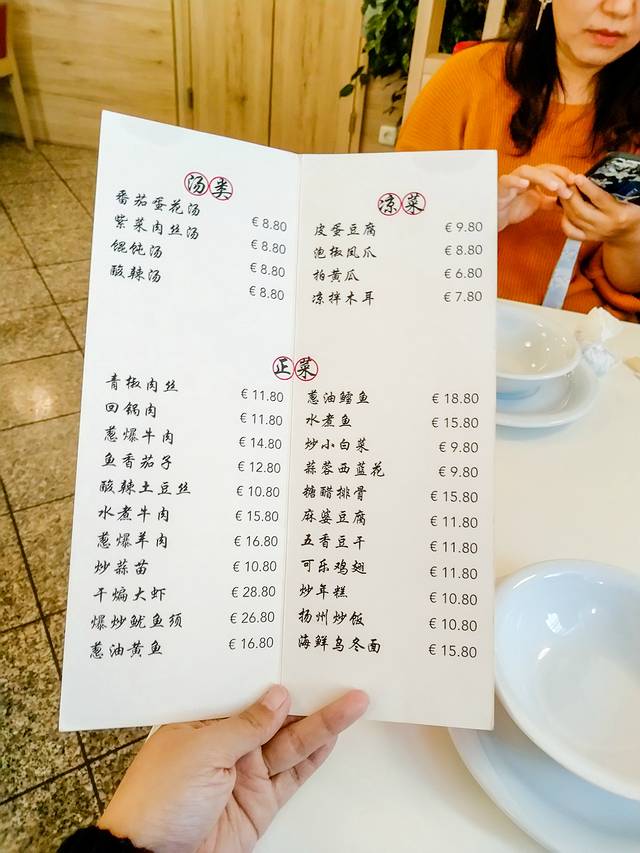 汤类
番茄蛋花汤 € 8.80
紫菜肉丝汤 € 8.80
馄饨汤 € 8.80
酸辣汤 € 8.80
凉菜
皮蛋豆腐 € 9.80
泡椒凤爪 € 8.80
拍黄瓜 € 6.80
凉拌木耳 € 7.80
正菜
青椒肉丝 € 11.80
回锅肉 € 11.80
葱爆牛肉 € 14.80
鱼香茄子 € 12.80
酸辣土豆丝 € 10.80
水煮牛肉 € 15.80
葱爆羊肉 € 16.80
炒蒜苗 € 10.80
干煸大虾 € 28.80
爆炒鱿鱼须 € 26.80
葱油黄鱼 € 16.80
葱油鳕鱼 € 18.80
水煮鱼 € 15.80
炒小白菜 € 9.80
蒜蓉西蓝花 € 9.80
糖醋排骨 € 15.80
麻婆豆腐 € 11.80
五香豆干 € 11.80
可乐鸡翅 € 11.80
炒年糕 € 10.80
扬州炒饭 € 10.80
海鲜乌冬面 € 15.80